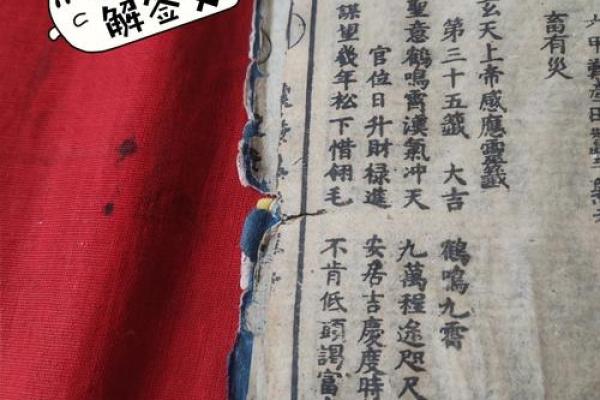 解签
六甲難產田
畜有災
玄天上帝感應靈籤
第三十五籤 大吉 鶴鳴九霄
聖意鶴鳴霄漢氣冲天 九萬程途咫尺
官位日升財禄進 安居吉慶度時
謀望幾年松下惜翎毛 不肯低頭謁富